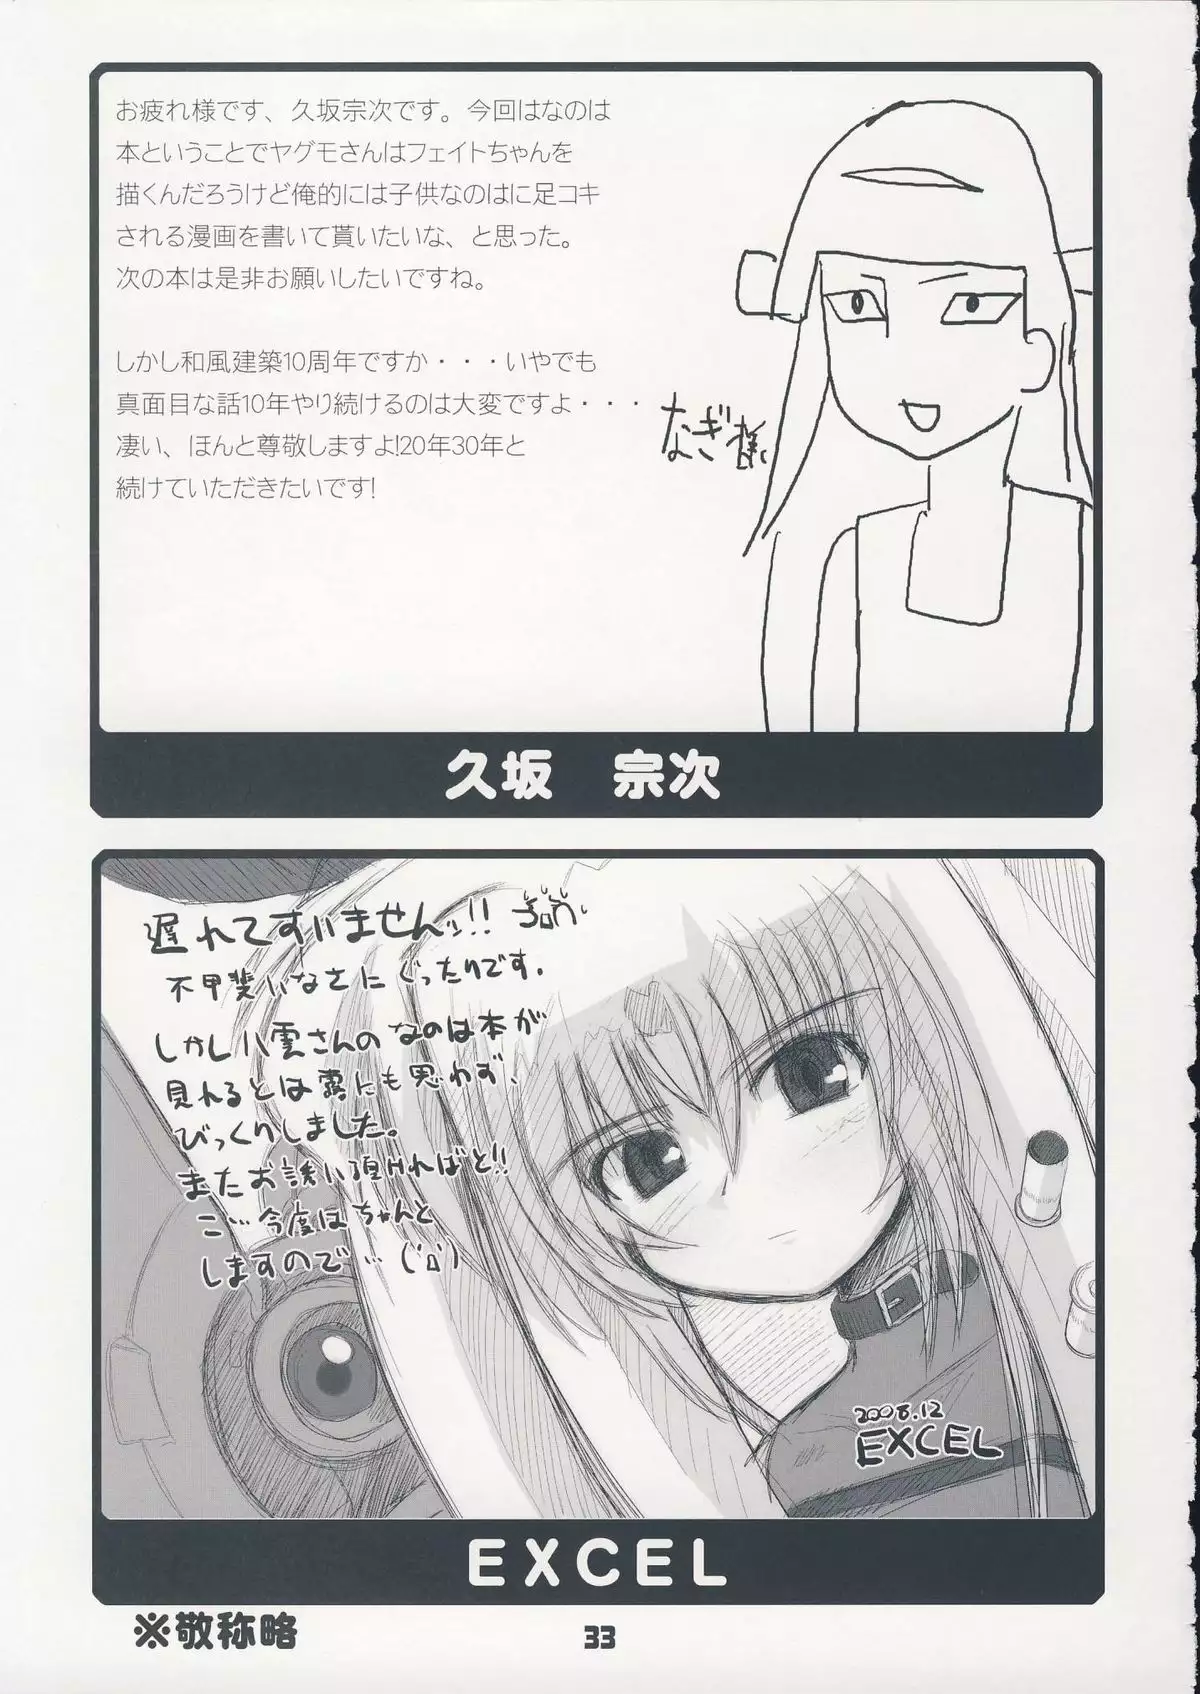 お疲れ様です、久坂宗次です。今回はなのは
本ということでヤグモさんはフェイトちゃんを
描くんだろうけど
次の本は是非お願いしたいですね。
しかし和風建築10周年ですか・・・いやでも
真面目な話10年やり続けるのは大変ですよ・・・
凄い、ほんと尊敬しますよ!20年30年と
続けていただきたいです!
なぎ様
久坂 宗次
遅れてすいませんッ!!
不甲斐なさにぐったりです。
しかし八雲さんのなのは本が
見れるとは露にも思わず、
びっくりしました。
またお誘い頂ければと!!
こ…今度はちゃんと
しますので…
2008.12
EXCEL
EXCEL
※敬称略
33